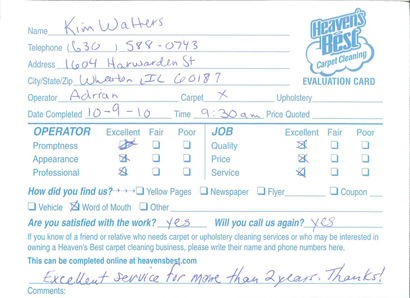 Name Kim Walters
Heaven's Best Carpet Cleaning
Telephone (630) 588-0743
Address 1604 Harwarden St
City/State/Zip Wheaton, IL 60187
EVALUATION CARD
Operator Adrian Carpet X Upholstery
Date Completed 10-9-10 Time 9:30am Price Quoted
OPERATOR Excellent Fair Poor JOB Excellent Fair Poor
Promptness ☒ ☐ ☐ Quality ☒ ☐ ☐
Appearance ☒ ☐ ☐ Price ☒ ☐ ☐
Professional ☒ ☐ ☐ Service ☒ ☐ ☐
How did you find us? ☐ Yellow Pages ☐ Newspaper ☐ Flyer ☐ Coupon
☐ Vehicle ☒ Word of Mouth ☐ Other
Are you satisfied with the work? yes Will you call us again? yes
If you know of a friend or relative who needs carpet or upholstery cleaning services or who may be interested in
owning a Heaven's Best carpet cleaning business, please write their name and phone numbers here.
This can be completed online at heavensbest.com
Excellent service for more than 2 years. Thanks!
Comments: